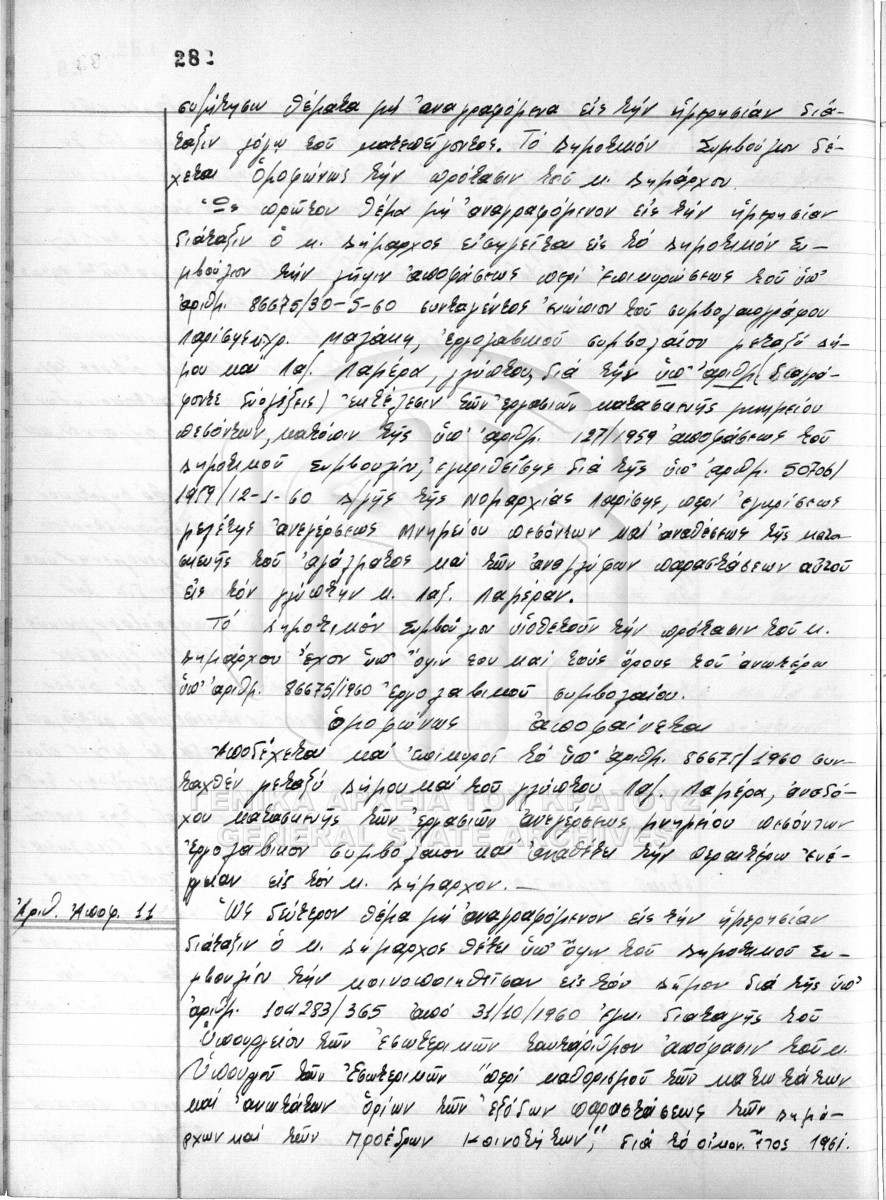 282
συζήτησιν θέματα μή ἀναγραφόμενα εἰς τήν ἡμερησίαν διά-
ταξιν λόγῳ τοῦ κατεπείγοντος. Τό Δημοτικόν Συμβούλιον δέ-
χεται ὁμοφώνως τήν πρότασιν τοῦ κ. Δημάρχου.
Ὡς πρῶτον θέμα μή ἀναγραφόμενον εἰς τήν ἡμερησίαν
διάταξιν ὁ κ. Δήμαρχος εἰσηγεῖται εἰς τό Δημοτικόν Συ-
μβούλιον τήν λῆψιν ἀποφάσεως περί ἐπικυρώσεως τοῦ ὑπ'
ἀριθμ. 86675/30-5-60 συνταγέντος ἐνώπιον τοῦ συμβολαιογράφου
Λαρίσης χρ. Μαλάκη, ἐργολαβικοῦ συμβολαίου μεταξύ Δή-
μου καί Λαζ. Λαμέρα, γλύπτου, διά τήν ὑπ' ἀριθμ. (διαγρά-
φονται δύο λέξεις) ἐκτέλεσιν τῶν ἐργασιῶν κατασκευῆς μνημείου
πεσόντων, κατόπιν τῆς ὑπ' ἀριθμ. 127/1959 ἀποφάσεως τοῦ
Δημοτικοῦ Συμβουλίου, ἐγκριθείσης διά τῆς ὑπ' ἀριθμ. 50706/
1959/12-1-60 Δ/γῆς τῆς Νομαρχίας Λαρίσης, περί ἐγκρίσεως
μελέτης ἀνεγέρσεως Μνημείου πεσόντων καί ἀναθέσεως τῆς κατα-
σκευῆς τοῦ ἀγάλματος καί τῶν ἀναγλύφων παραστάσεων αὐτοῦ
εἰς τόν γλύπτην κ. Λαζ. Λαμέραν.
Τό Δημοτικόν Συμβούλιον υἱοθετοῦν τήν πρότασιν τοῦ κ.
Δημάρχου ἔχον ὑπ' ὄψιν του καί τούς ὅρους τοῦ ἀνωτέρω
ὑπ' ἀριθμ. 86675/1960 ἐργολαβικοῦ συμβολαίου.
ὁμοφώνως ἀποφαίνεται
Ἀποδέχεται καί ἐπικυροῖ τό ὑπ' ἀριθμ. 86675/1960 συν-
ταχθέν μεταξύ Δήμου καί τοῦ γλύπτου Λαζ. Λαμέρα, ἀναδό-
χου κατασκευῆς τῶν ἐργασιῶν ἀνεγέρσεως μνημείου πεσόντων
ἐργολαβικόν συμβόλαιον καί ἀναθέτει τήν περαιτέρω ἐνέ-
ργειαν εἰς τόν κ. Δήμαρχον. —
Ἀριθ. Ἀποφ. 11
Ὡς δεύτερον θέμα μή ἀναγραφόμενον εἰς τήν ἡμερησίαν
διάταξιν ὁ κ. Δήμαρχος θέτει ὑπ' ὄψιν τοῦ Δημοτικοῦ Συ-
μβουλίου τήν κοινοποιηθεῖσαν εἰς τόν Δῆμον διά τῆς ὑπ'
ἀριθμ. 104283/365 ἀπό 31/10/1960 ἐγκ. διαταγῆς τοῦ
Ὑπουργείου τῶν Ἐσωτερικῶν ταυτάριθμον ἀπόφασιν τοῦ κ.
Ὑπουργοῦ τῶν Ἐσωτερικῶν "περί καθορισμοῦ τῶν κατωτάτων
καί ἀνωτάτων ὁρίων τῶν ἐξόδων παραστάσεως τῶν Δημά-
ρχων καί τῶν Προέδρων Κοινοτήτων," διά τό οἰκον. ἔτος 1961.
ΓΕΝΙΚΑ ΑΡΧΕΙΑ ΤΟΥ ΚΡΑΤΟΥΣ
GENERAL STATE ARCHIVES